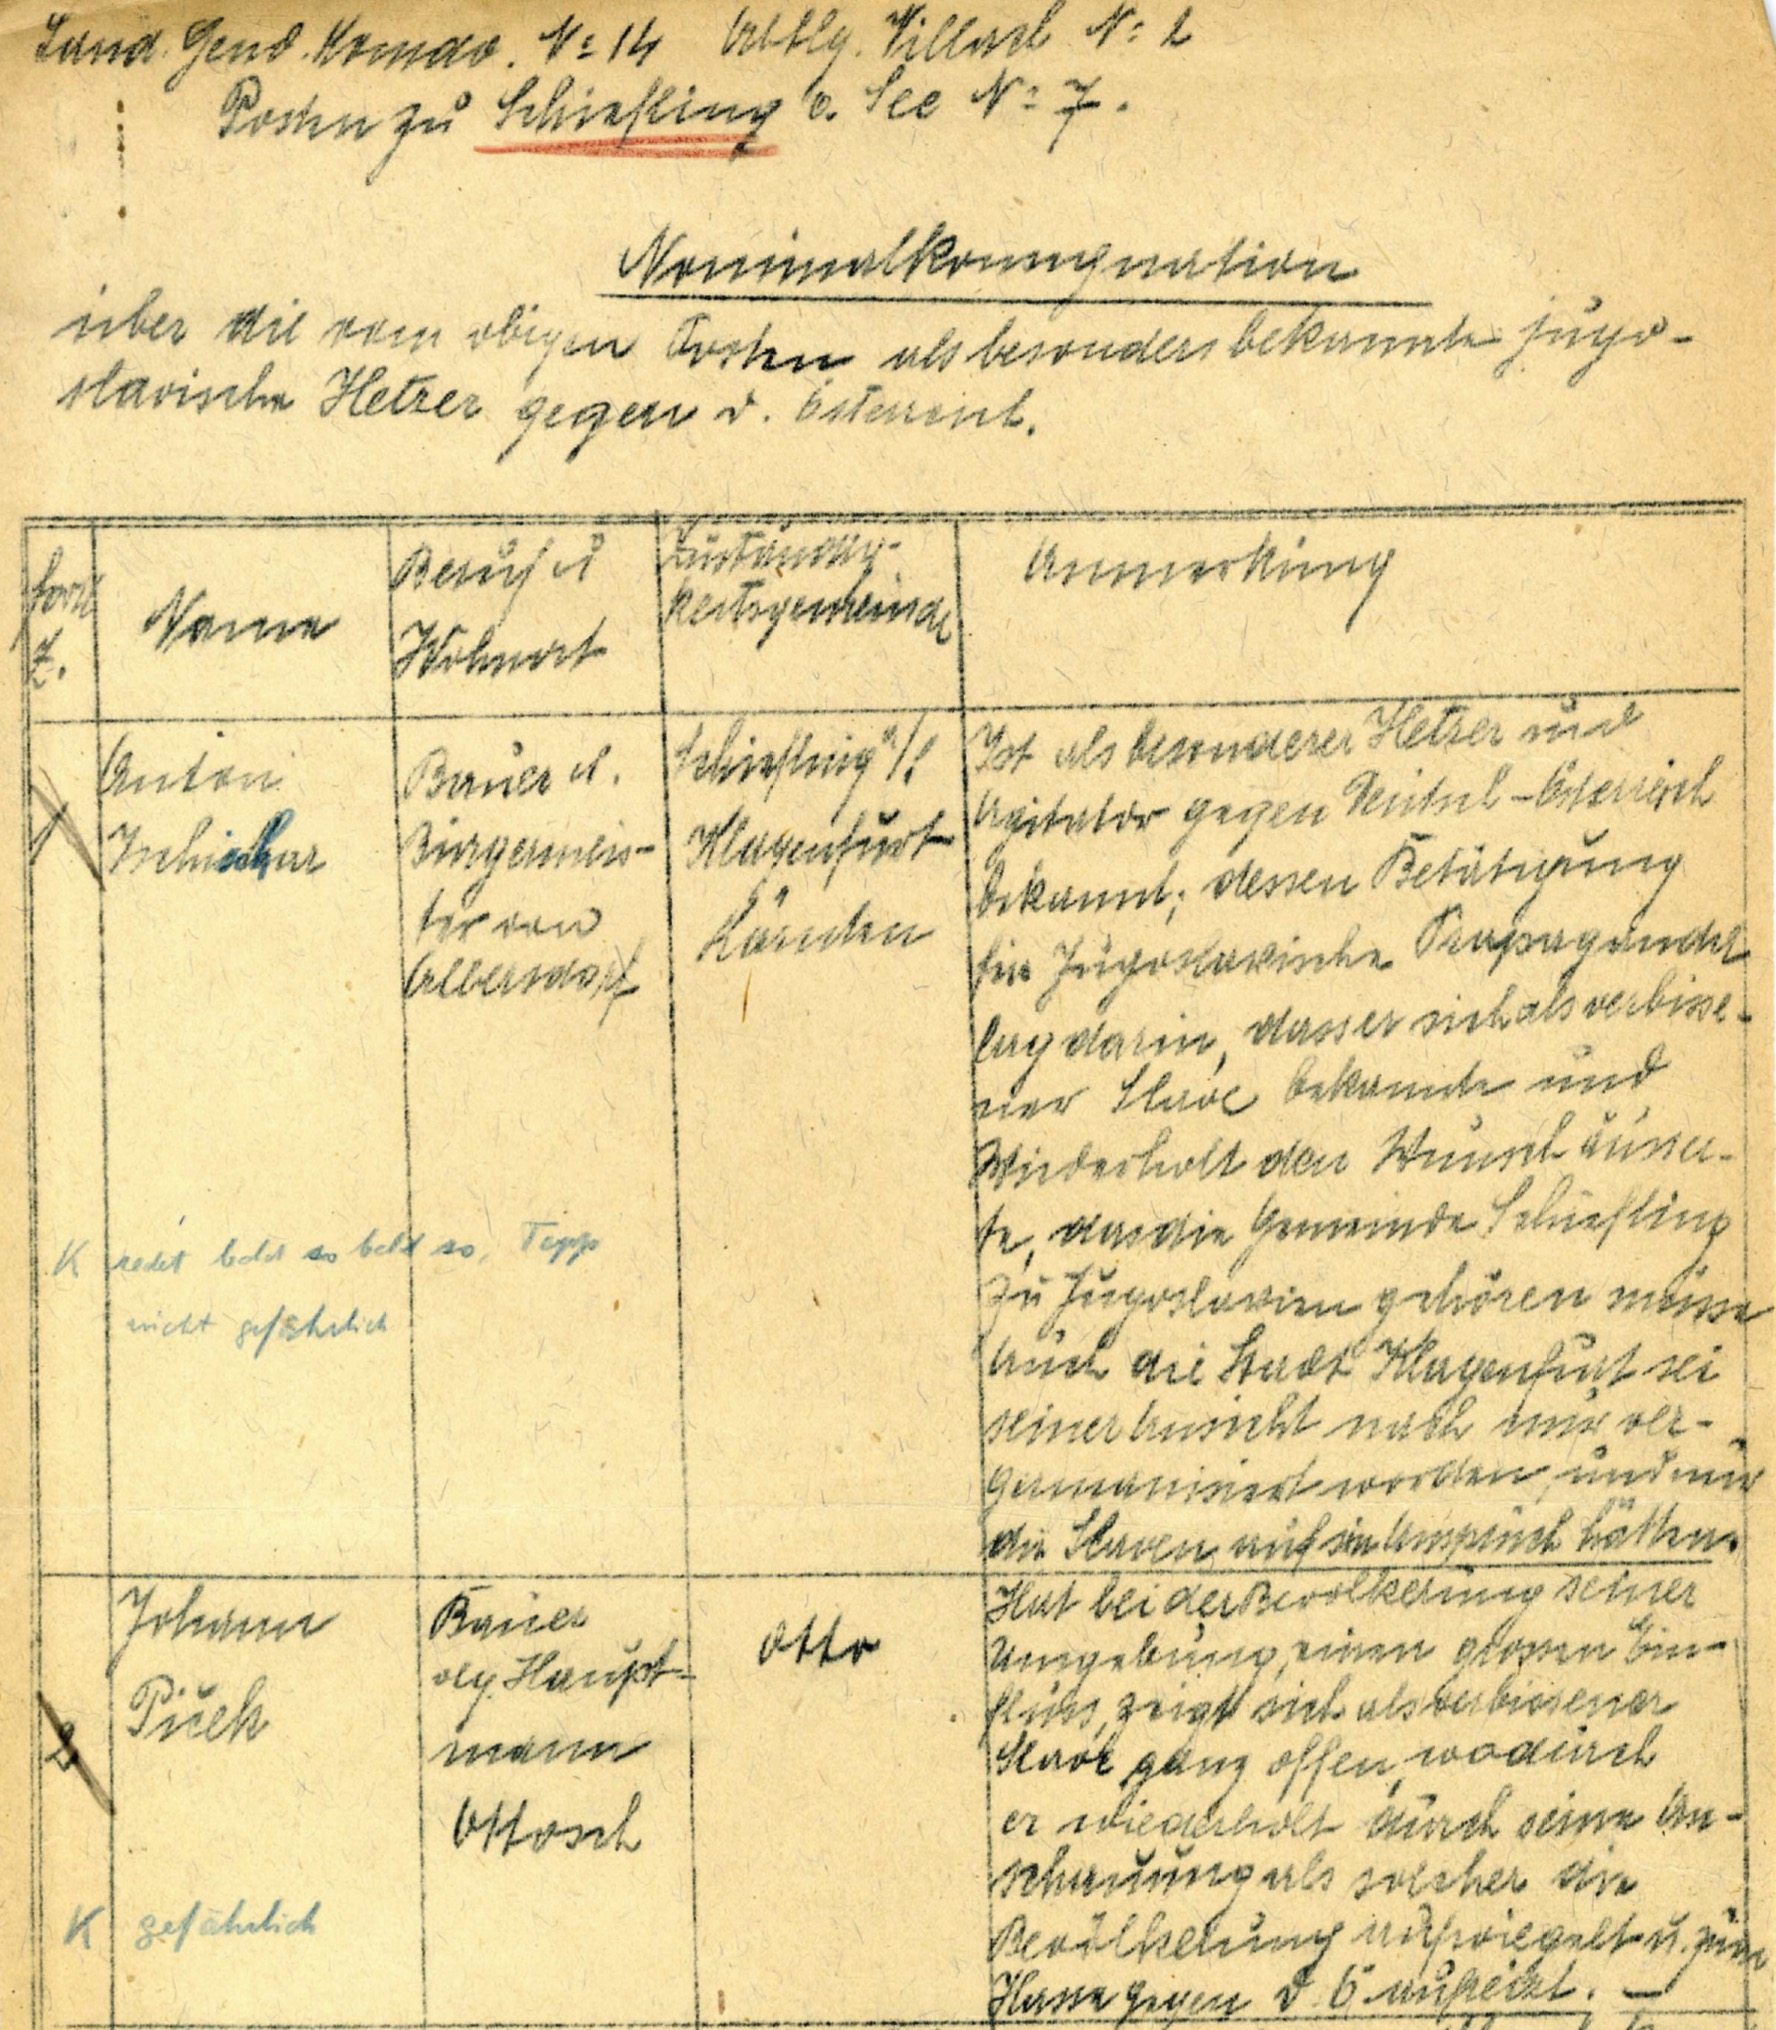 Land. Gend. Komdo. № 14 Abtlg. Villach № 2
Posten zu Schiefling a. See № 7.
Nominalkonsignation
über die vom obigen Posten als besonders bekannte jugo-
slavische Hetzer gegen d. Österreich.
Fortl
Z.
Name
Beruf u
Wohnort
Zuständig-
keitsgemeinde
Anmerkung
1
Anton
Bauer u.
Bürgermeis-
ter von
Albersdorf
Schiefling a/S
Klagenfurt
Kärnten
Ist als besonderer Hetzer und
Agitator gegen Deutsch-Österreich
bekannt; dessen Betätigung
für Jugoslavische Propaganda
lag darin, dass er sich als verbisse-
ner Slave bekannte und
Wiederholt den Wunsch äusser-
te, das die Gemeinde Schiefling
zu Jugoslavien gehören müsse
Auch die Stadt Klagenfurt sei
seiner Ansicht nach nur ver-
germanisiert worden, und nur
die Slaven auf sie Anspruch hätten.
K redet bald so bald so, Tepp
nicht gefährlich
2
Johann
Piček
Bauer
vlg. Haupt-
mann
Ottosch
otto
Hat bei der Bevölkerung seiner
Umgebung, einen grossen Ein-
fluss, zeigt sich als verbissener
Slave ganz offen, wodurch
er wiederholt durch seine An-
schauung als solcher die
Bevölkerung aufwiegelt u. zum
Hasse gegen d. Ö. aufreizt. —
K gefährlich